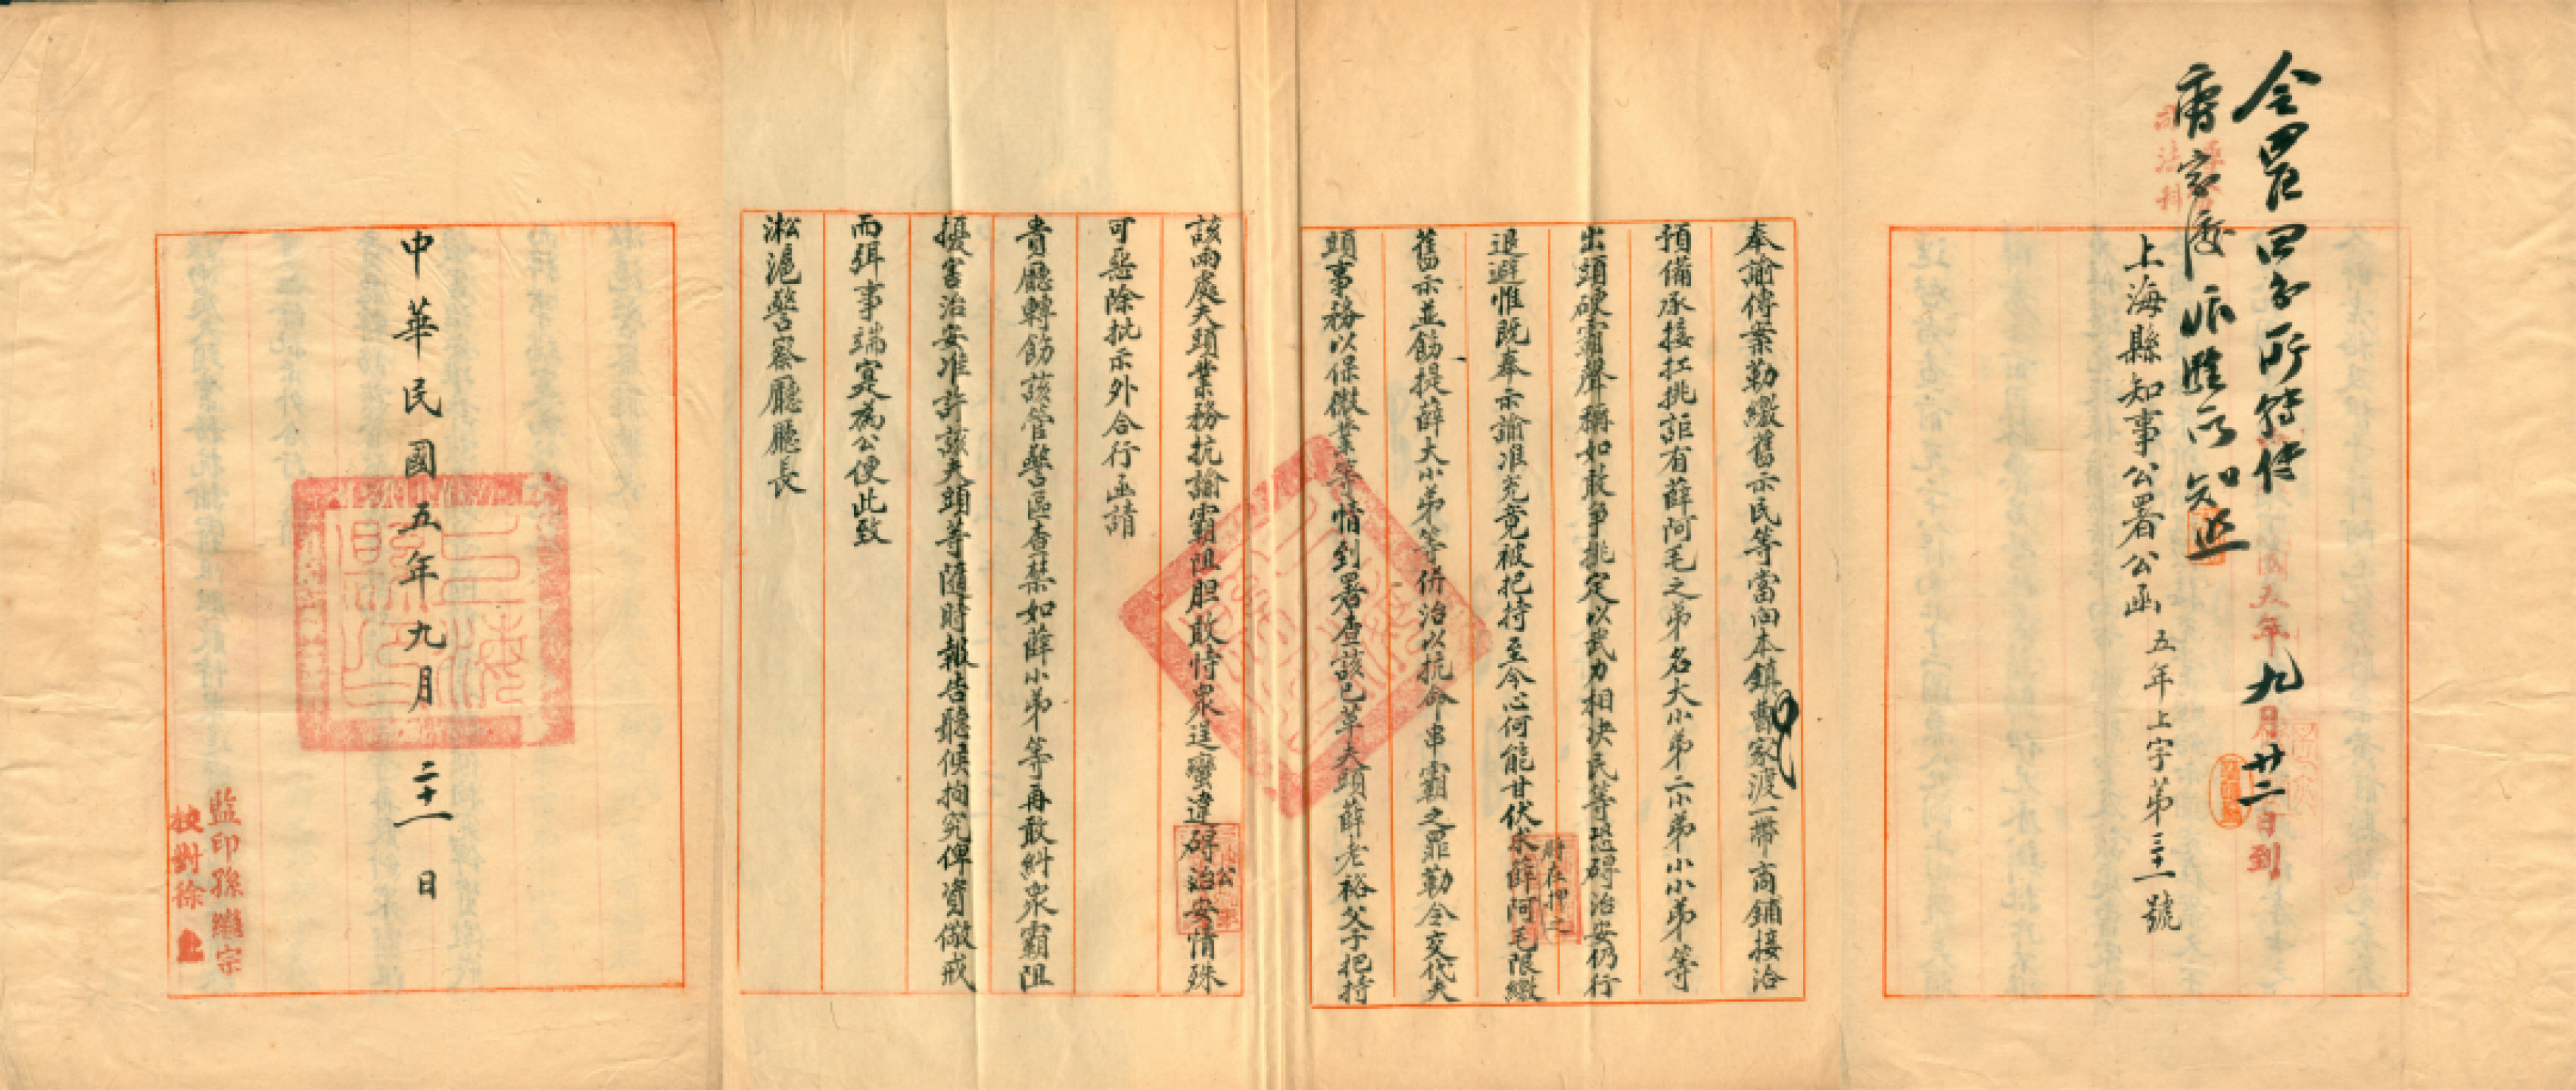 上海縣知事公署公函 五年上字第三十一號
國五年九月廿二日到
奉諭傳案勒繳舊示民等當向本鎮曹家渡一帶商鋪接洽
預備承接扛挑詎有薛阿毛之弟名大小弟二小弟小小弟等
出頭硬霸聲稱如敢爭挑定以武力相決民等恐碍治安仍行
退避惟既奉示諭准充竟被把持至今心何能甘伏求薛阿毛限繳
尉在押之
舊示並飭提薛大小弟等併治以抗命串霸之罪勒令交代夫
頭事務以保儆業等情到署查該已革夫頭薛老裕父子把持
該兩處夫頭業務抗諭霸阻胆敢恃衆逞蠻違碍治安情殊
可惡除批示外合行函請
貴廳轉飭該管警區查禁如薛小弟等再敢糾衆霸阻
擾害治安准許該夫頭等隨時報告聽候拘究俾資儆戒
而弭事端寔為公便此致
淞滬警察廳廳長
中華民國五年九月二十一日
監印孫繼宗
校對徐